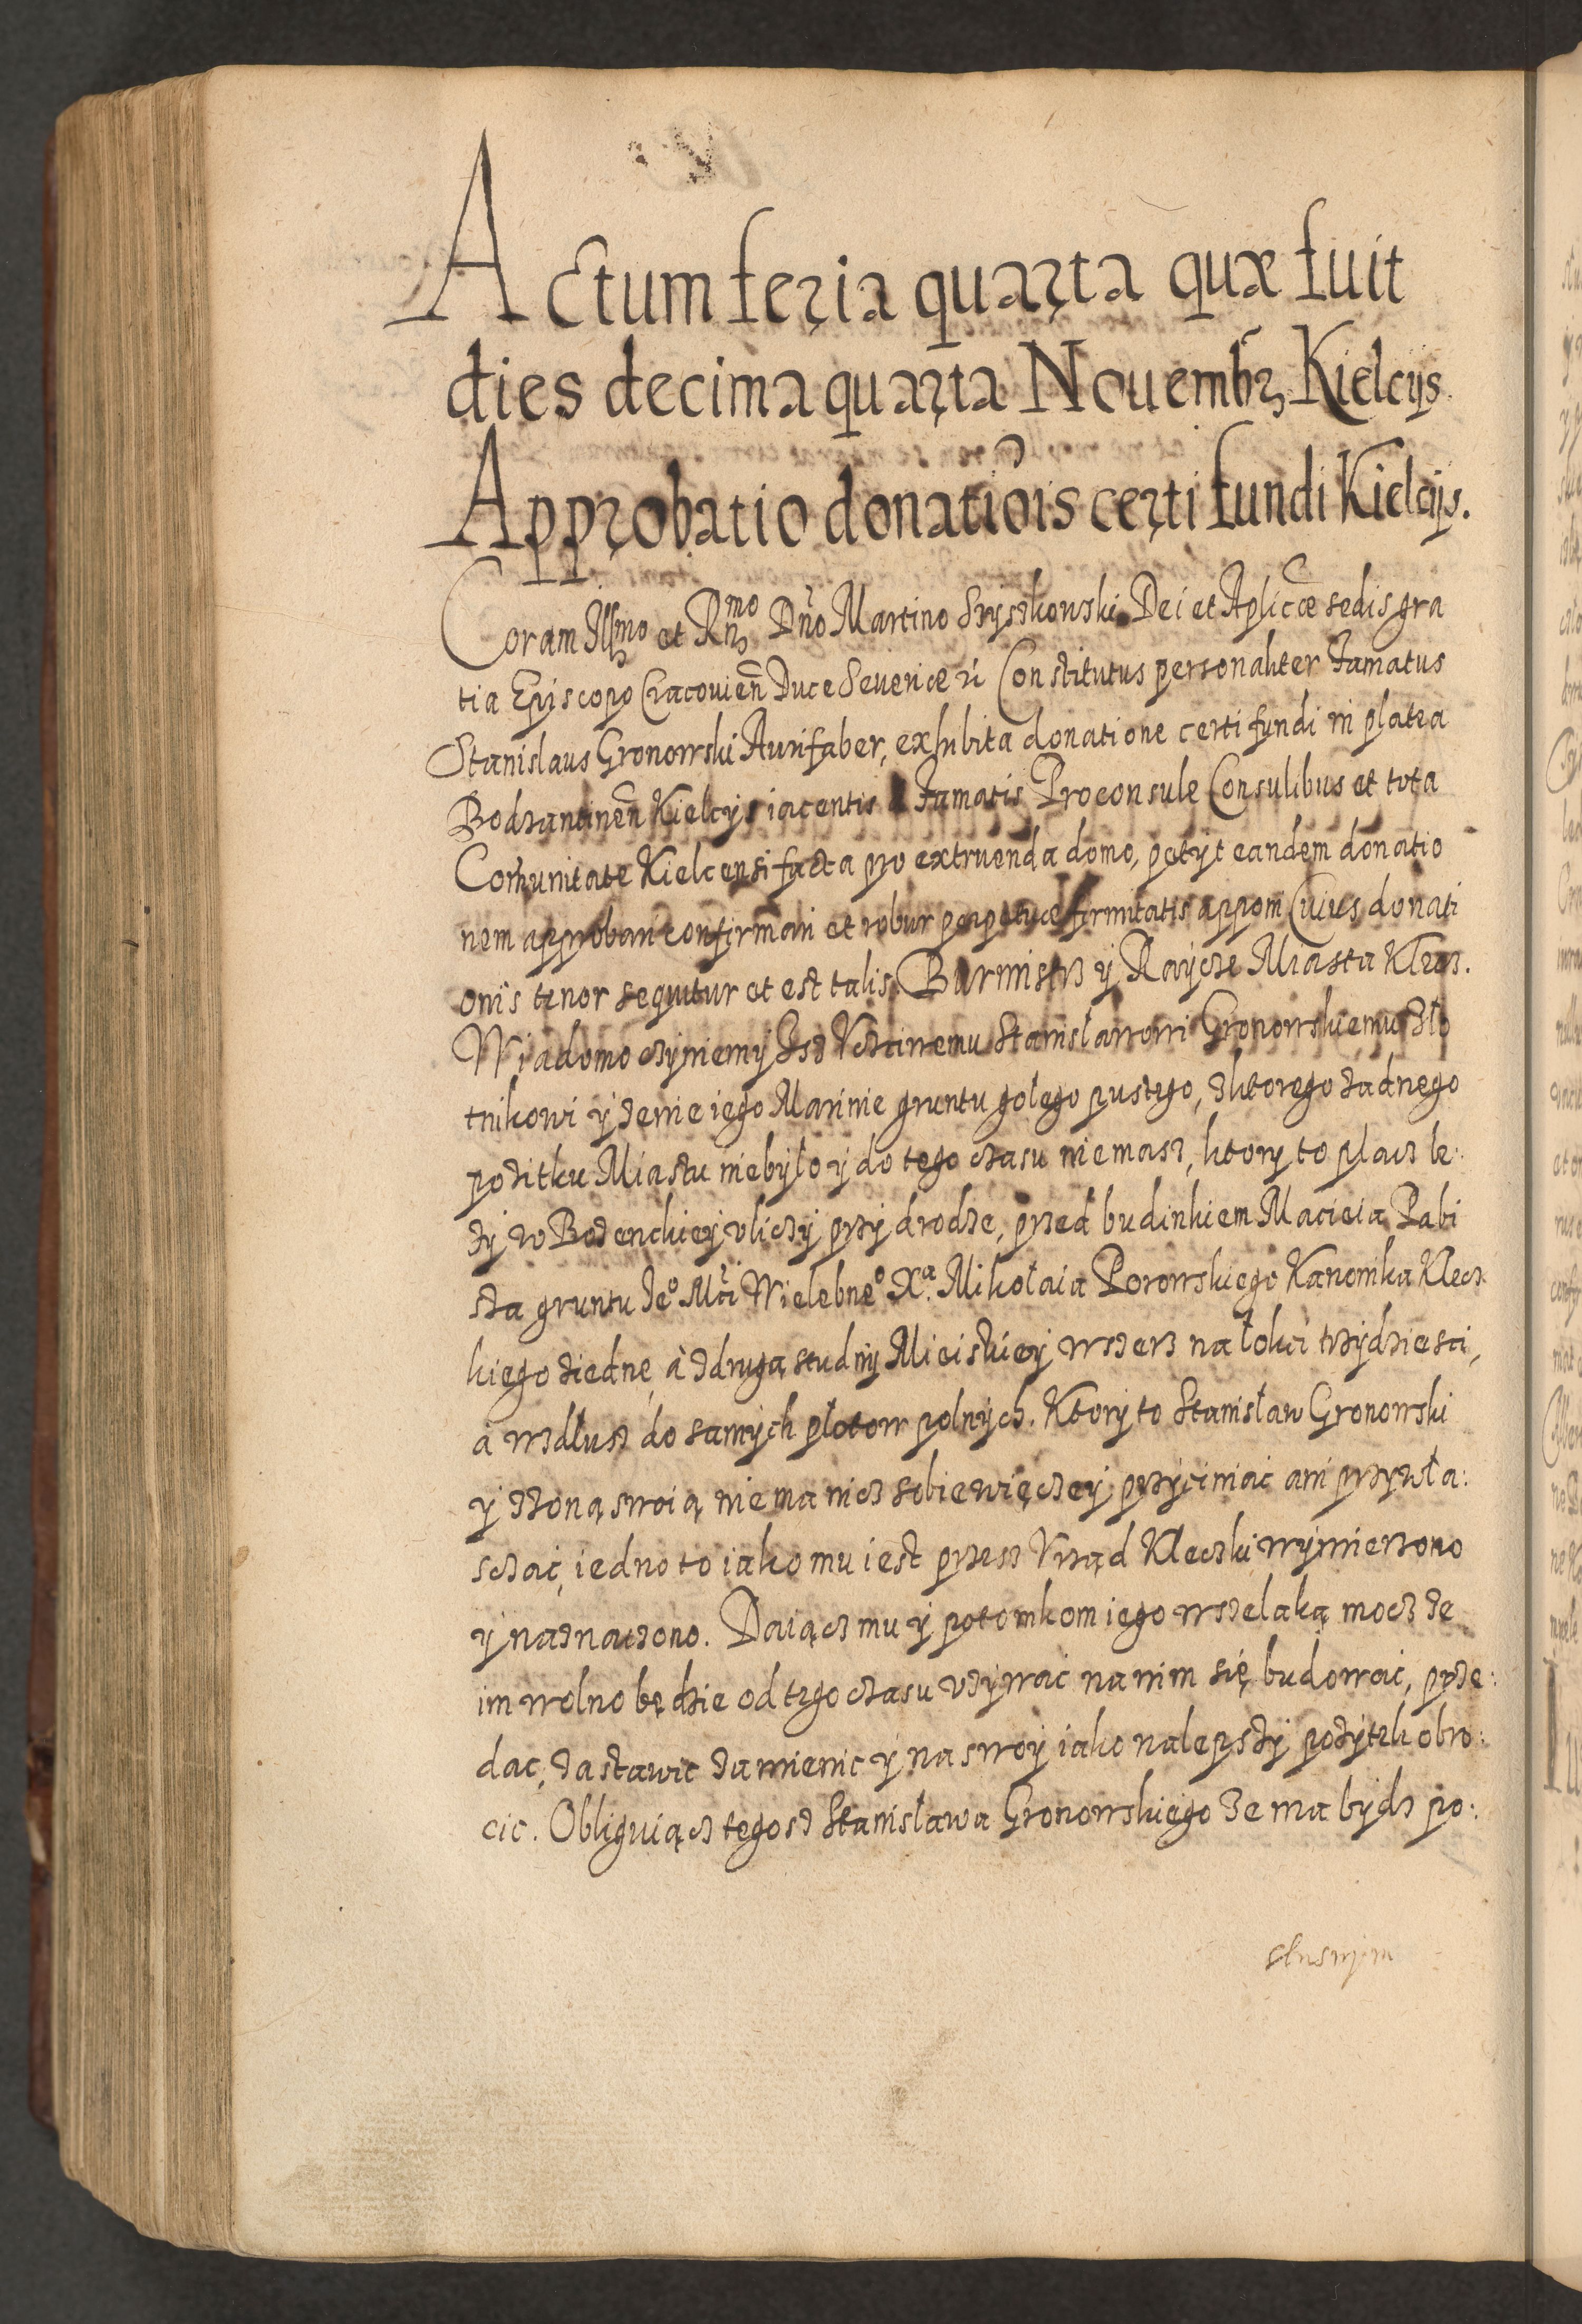 Actum feria quarta quæ fuit
dies decima quarta Nouembr. Kielcijs.
Approbatio donatiõis certi fundi Kielcijs.
Coram Illmo et Rmo Dño Martino Szyszkowski Dei et Aplicæ sedis gra
tia Episcopo Cracouieñ Duce Seueriæ Constitutus personaliter Famatus
Stanislaus Gronowski Aurifaber, exhibita donatione certi fundi in platea
Bodzantineñ Kielcijs iacentis a Famatis Proconsule Consulibus et tota
Com̃unitate Kielcensi facta pro extruenda domo, petijt eandem donatio
nem approbari confirmari et robur perpetuæ firmitatis apponi Cuius donati
onis tenor sequitur et est talis. Burmistrz ÿ Raÿcze Miasta Klecz.
Wiadomo czÿniemÿ Isz Vcztiwemu Stanisławowi Gronowskiemu Zło
tnikowi ÿ zenie iego Marinie gruntu gołego pustego, zktorego zadnego
pozitku Miastu niebÿło ÿ do tego czasu niemasz, ktorÿ to placz le:
zÿ w Bozenckieÿ vliczÿ przÿ drodze, przed budinkiem Macieia Pabi
sza gruntu Jeº Mći Wielebneº Xª. Mikołaia Porowskiego Kanonika Klecz
kiego ziednę, à zdrugą studnÿ Mieiskieÿ wszerz na łokci trzÿdziesci,
à wzdłusz do samÿch płotow polnÿch. Ktorÿ to Stanisław Gronowski
ÿ zzoną swoią nie ma nicz sobie więczeÿ przÿciniać ani przÿwła:
sczać, iedno to iako mu iest przesz Vrząd Kleczki wÿmierzono
ÿ naznaczono. Daiącz mu ÿ potomkom iego wszelaką mocz ze
im wolno będzie od tego czasu vzÿwać na nim się budować, prze:
dac, zastawic zamienic ÿ na swoÿ iako nalepszÿ pozÿtek obro:
cic. Obliguiącz tegosz Stanisława Gronowskiego ze ma bÿdz po: